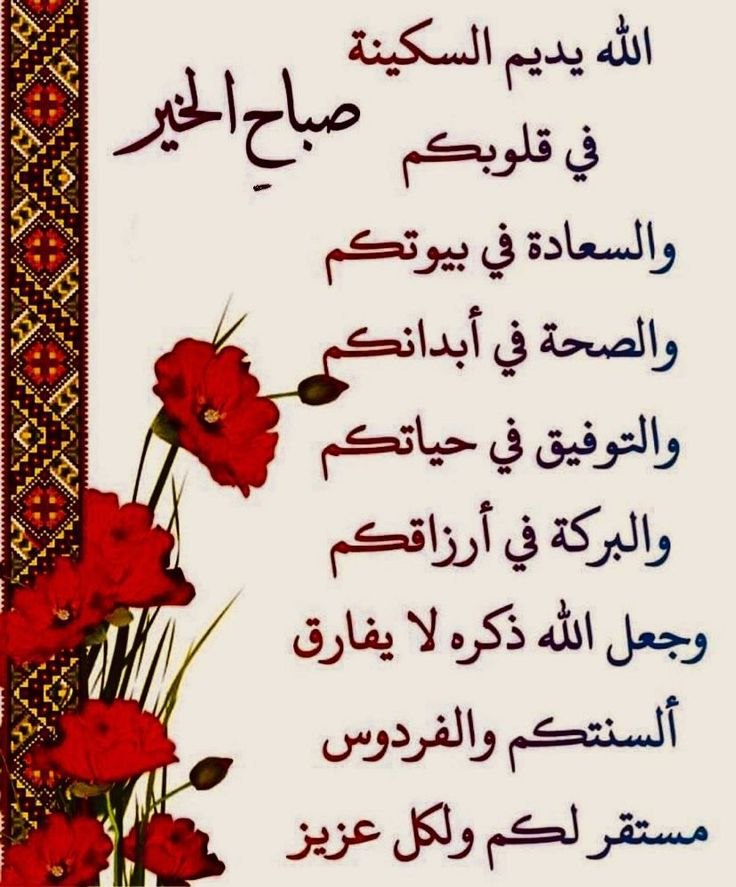 الله يديم السكينة
صباح الخير
في قلوبكم
والسعادة في بيوتكم
والصحة في أبدانكم
والتوفيق في حياتكم
والبركة في أرزاقكم
وجعل الله ذكره لا يفارق
ألسنتكم والفردوس
مستقر لكم ولكل عزيز